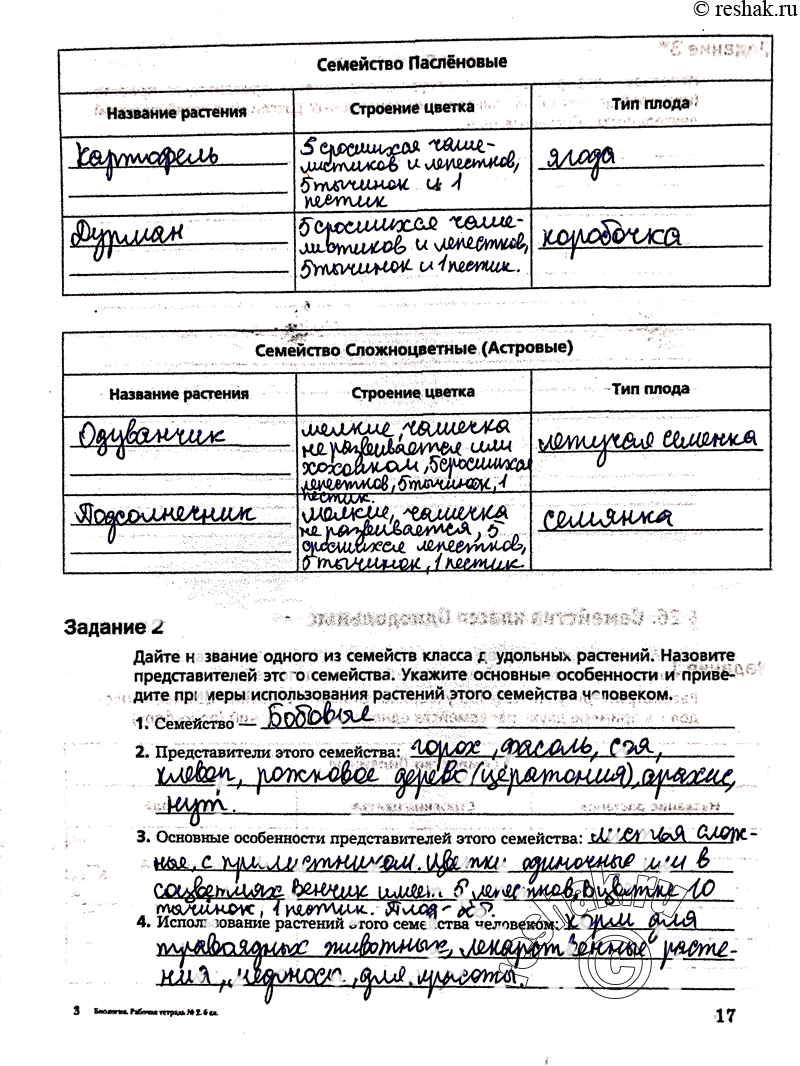 © reshak.ru
Семейство Паслёновые
Название растения Строение цветка Тип плода
Картофель
5 сросшихся чаше-
листиков и лепестков,
5 тычинок и 1
пестик
ягода
Дурман
5 сросшихся чаше-
листиков и лепестков,
5 тычинок и 1 пестик.
коробочка
Семейство Сложноцветные (Астровые)
Название растения Строение цветка Тип плода
Одуванчик
мелкие, чашечка
не развивается или
хохолком, 5 сросшихся
лепестков, 5 тычинок, 1
пестик.
летучая семенка
Подсолнечник
мелкие, чашечка
не развивается, 5
сросшихся лепестков,
5 тычинок, 1 пестик
семянка
Задание 2
Дайте название одного из семейств класса двудольных растений. Назовите
представителей этого семейства. Укажите основные особенности и приве-
дите примеры использования растений этого семейства человеком.
1. Семейство — Бобовые
2. Представители этого семейства: горох, фасоль, соя,
клевер, рожковое дерево (цератония), арахис,
нут.
3. Основные особенности представителей этого семейства: листья слож-
ные, с прилистником. Цветки одиночные или в
соцветиях Венчик имеет 5 лепестков, В цветке 10
тычинок, 1 пестик. Плод - боб.
4. Использование растений этого семейства человеком: корм для
травоядных животных, лекарственные расте-
ния, для красоты.
3 Биология. Рабочая тетрадь № 2. 6 кл.
17